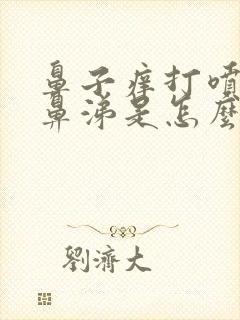 鼻子痒打噴
鼻涕是怎麼
劉濟大